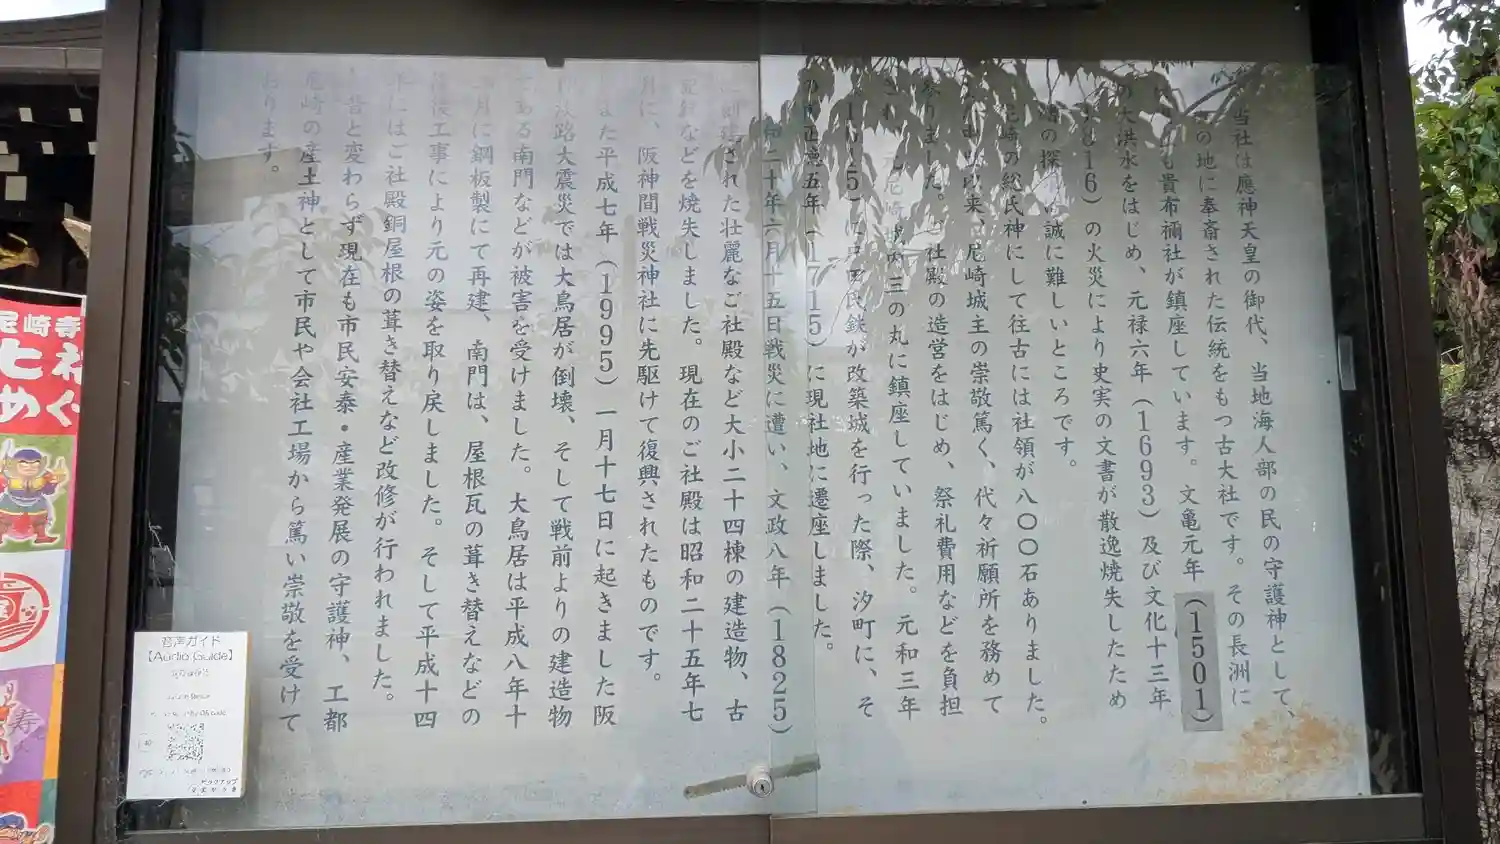 当社は應神天皇の御代、当地海人部の民の守護神として、
の地に奉斎された伝統をもつ古大社です。その長洲に
も貴布禰社が鎮座しています。文亀元年(1501)
の大洪水をはじめ、元禄六年(1693)及び文化十三年
16)の火災により史実の文書が散逸焼失したため
の探 は誠に難しいところです。
尼崎の総氏神にして往古には社領が八〇〇石ありました。
以来、尼崎城主の崇敬篤く、代々祈願所を務めて
参りました。ご社殿の造営をはじめ、祭礼費用などを負担
され 元尼崎城内三の丸に鎮座していました。元和三年
に戸田氏鉄が改築城を行った際、汐町に、そ
の 正徳五年(1715)に現社地に遷座しました。
和二十年六月十五日戦災に遭い、文政八年(1825)
された壮麗なご社殿など大小二十四棟の建造物、古
記録などを焼失しました。現在のご社殿は昭和二十五年七
月に、阪神間戦災神社に先駆けて復興されたものです。
また平成七年(1995)一月十七日に起きました阪
神淡路大震災では大鳥居が倒壊、そして戦前よりの建造物
である南門などが被害を受けました。大鳥居は平成八年十
月に鋼板製にて再建、南門は、屋根瓦の葺き替えなどの
修復工事により元の姿を取り戻しました。そして平成十四
年にはご社殿銅屋根の葺き替えなど改修が行われました。
昔と変わらず現在も市民安泰・産業発展の守護神、工都
尼崎の産土神として市民や会社工場から篤い崇敬を受けて
おります。
音声ガイド
【Audio Guide】
尼崎寺
七社
めぐ
寿